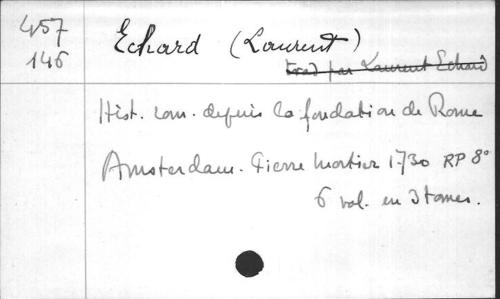 457
146
Echard (Laurent)
trad par Laurent Echard
Hist. rom. depuis la fondation de Rome
Amsterdam. Pierre Mortier 1730 RP 8°
6 vol. en 3 tomes.